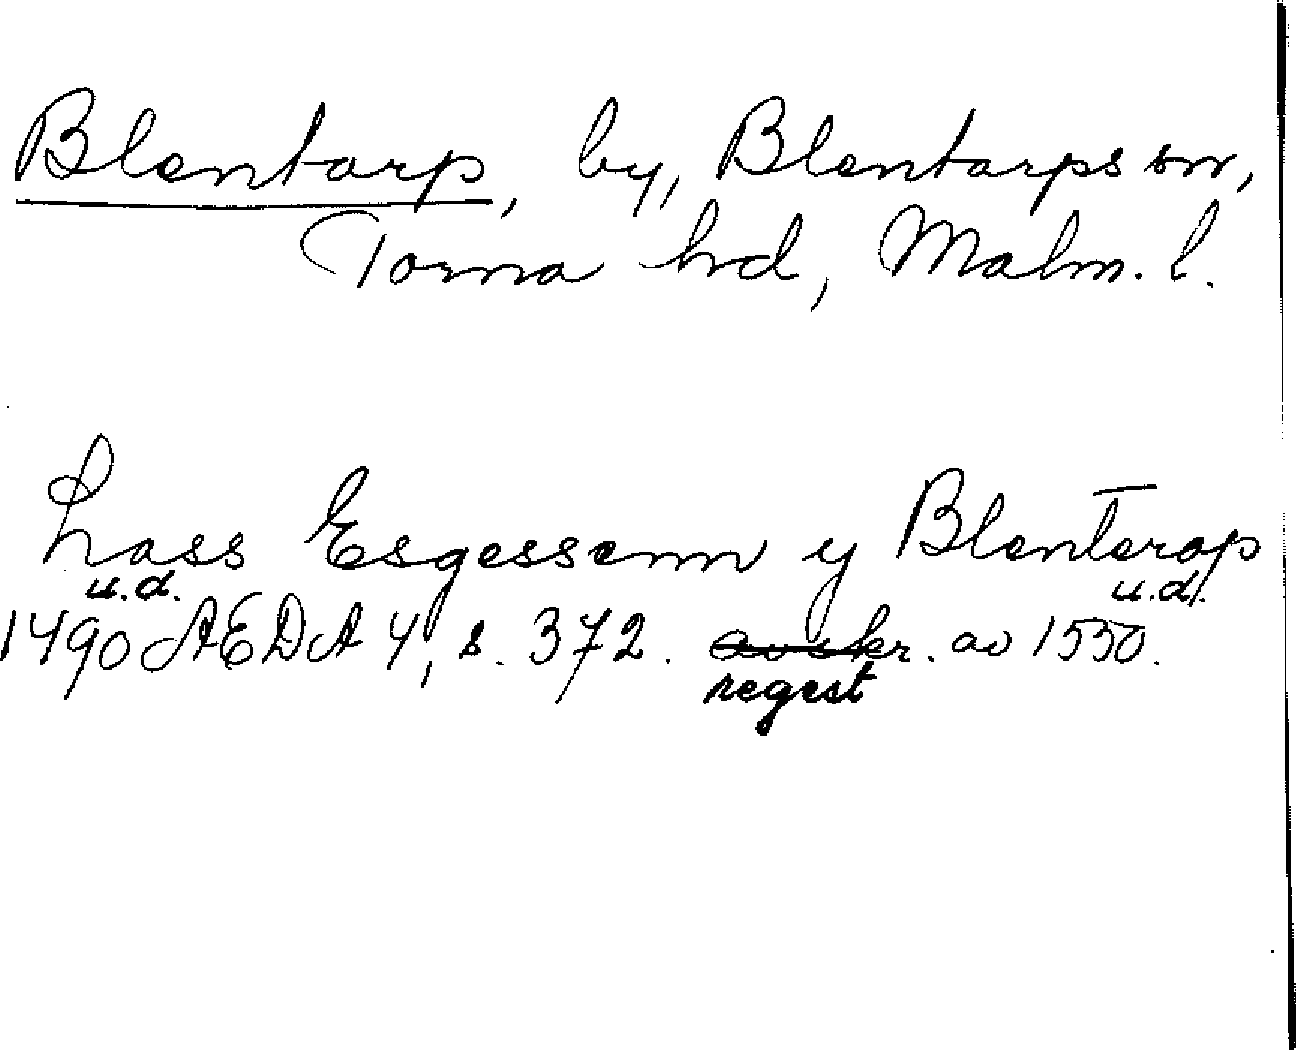 Blentarp, by, Blentarps sn,
Torna hd, Malm. l.
Lass Esgessenn y Blenterop
u.d. u.d.
1490 AEDA 4, s. 372. avskr. av 1550.
regest